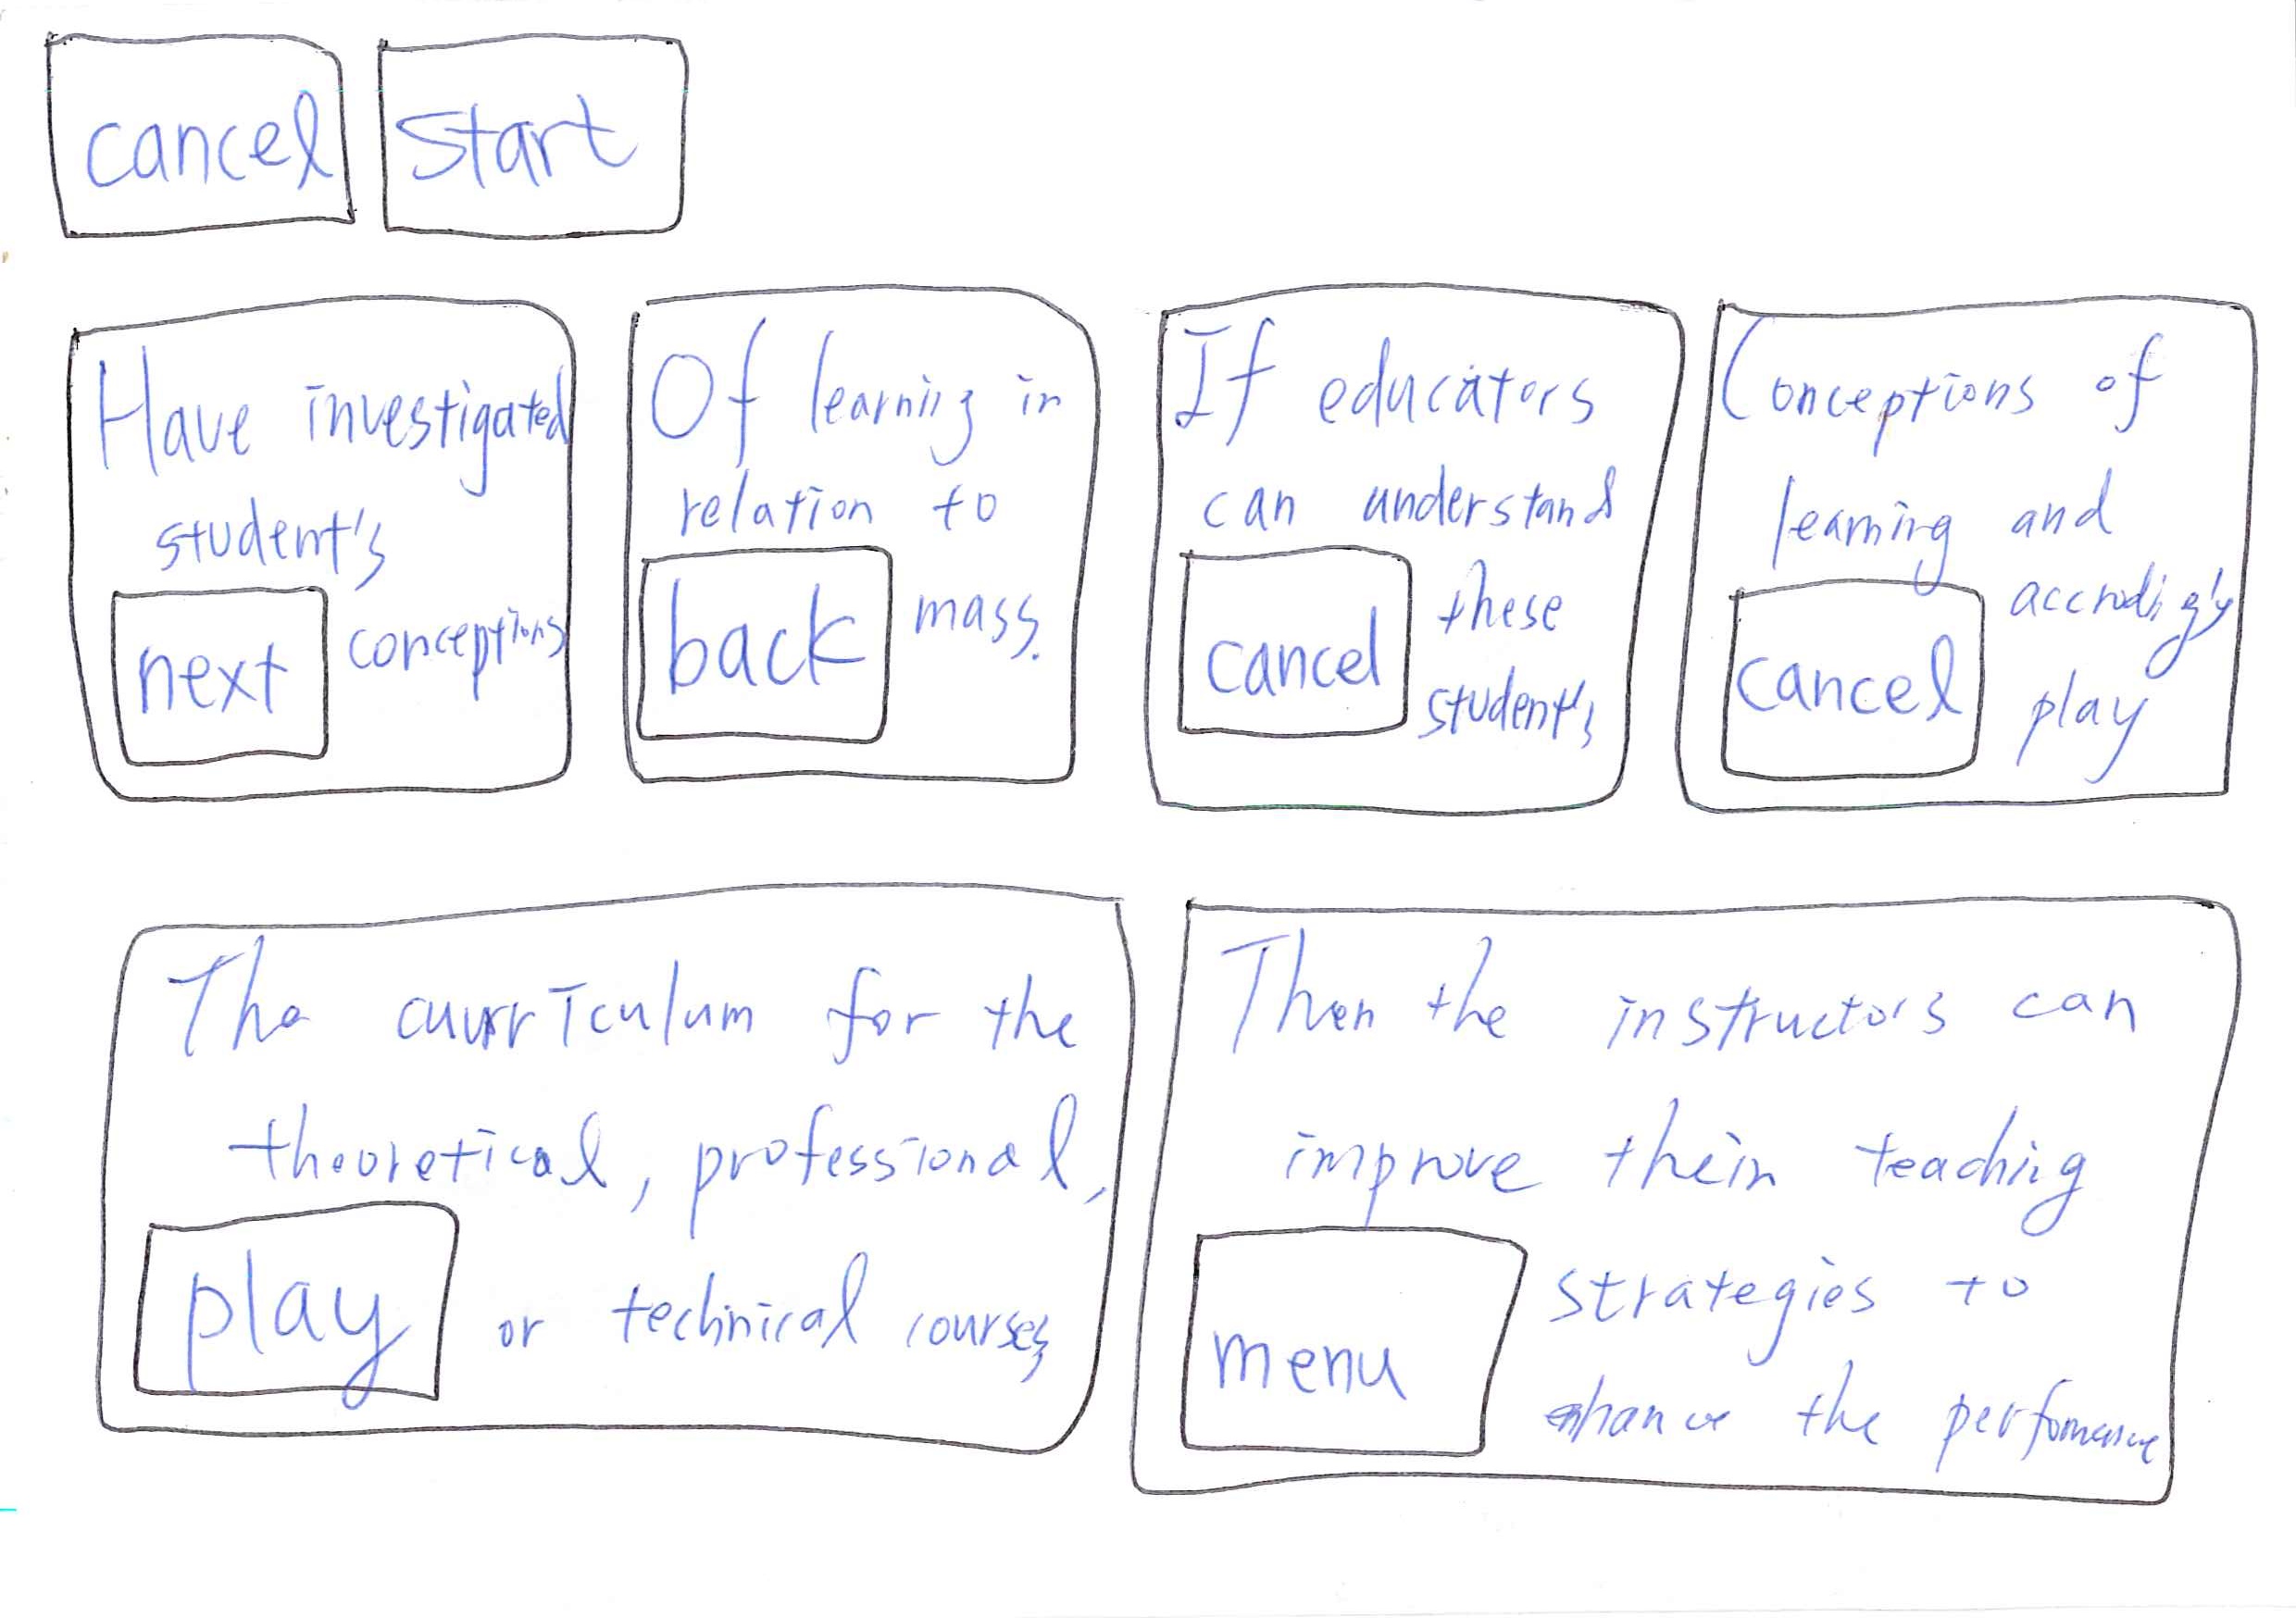 cancel
start
Have investigated
student's
conceptions
next
Of learning in
relation to
mass.
back
If educators
can understand
these
student's
cancel
Conceptions of
learning and
accrodigly
play
cancel
The curriculum for the
theoretical, professional,
or technical courses
play
Then the instructors can
improve thein teaching
strategies to
enhance the perfomance
menu